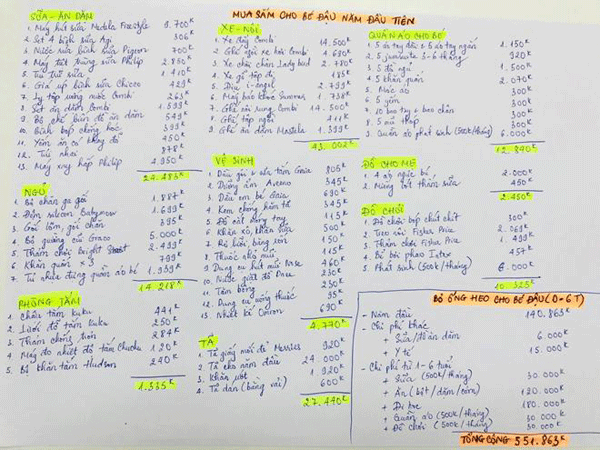 MUA SẮM CHO BÉ ĐẬU NĂM ĐẦU TIÊN
SỮA - ĂN DẶM
1. Máy hút sữa Medela Freestyle 9.700K
2. Set 4 bình sữa 306K
3. Nước rửa bình sữa Pigeon 700K
4. Máy tiệt trùng sữa Philip 2.850K
5. Túi trữ sữa 1.410K
6. Giá úp bình sữa Chicco 429K
7. Ly tập uống nước Combi 263K
8. Set ăn dặm Combi 1.599K
9. Bộ chế biến đồ ăn dặm 549K
10. Bình bóp chống hóc 399K
11. Yếm ăn 450K
12. Túi nhai 878K
13. Máy xay hấp Philip 4.950K
24.483K
NGỦ
1. Bộ chăn ga gối 1.887K
2. Đệm silicon Babymow 1.699K
3. Gối lõm, gối chặn 395K
4. Bộ quây cũi Graco 5.000K
5. Thảm chơi Bright 2.499K
6. Khăn quấn 799K
7. Tủ nhựa đựng quần áo bé 1.939K
14.218K
PHÒNG TẮM
1. Chậu tắm kuku 441K
2. Lưới đỡ tắm kuku 250K
3. Thảm chống trơn 284K
4. Máy đo nhiệt độ tắm Chuchu 120K
5. Bộ khăn tắm Hudson 240K
1.335K
XE - NÔI
1. Xe đẩy Combi 14.500K
2. Ghế ngồi xe hơi Combi
3. Xe chòi chân Lady bud 2.780K
4. Xe gỗ tập đi 185K
5. Địu i-angel
6.
7. Ghế nôi rung Combi 14.500K
8. Ghế tập ngồi 411K
9. Ghế ăn dặm Mastela 1.399K
43.002K
VỆ SINH
1. Dầu gội & sữa tắm Gaia 805K
2. Dưỡng ẩm Aveeno 345K
3. 690K
4. Kem chống hăm tã 345K
5. Bộ cắt móng tay 115K
6. Khăn xô, khăn sữa 500K
7. Rơ lưỡi, băng rốn 150K
8. 115K
9. Dụng cụ hút mũi Nose 460K
10. Nước giặt đồ Dnee 230K
11. Tăm bông 230K
12. Dụng cụ uống thuốc 95K
13. Nhiệt kế Omron 690K
4.770K
TÃ
1. Tã giấy mới đẻ Merries 920K
2. Tã cho năm đầu 24.000K
3. Khăn ướt 1.920K
4. Tã dán (bằng vải) 600K
27.440K
QUẦN ÁO CHO BÉ
1. 5 áo tay dài & 5 áo tay ngắn 1.150K
2. 5 jumsuite 3-6 tháng 920K
3. 5 đồ ngủ 1.500K
4. 5 khăn quấn 2.070K
5. Móc áo 300K
6. 5 yếm 300K
7. 10 bao tay & bao chân 300K
8. 5 mũ thóp 300K
9. Quần áo phát sinh (500K/tháng) 6.000K
12.840K
ĐỒ CHO MẸ
1. 4 áo ngực bú 2.000K
2. Miếng lót thấm sữa 450K
2.450K
ĐỒ CHƠI
1. Đồ chơi bóp chút chít 300K
2. Treo nôi Fisher Price 2.069K
3. Thảm chơi Fisher Price 1.499K
4. Bể bơi phao Intex 457K
5. Phát sinh (500K/tháng) 6.000K
10.325K
BỎ ỐNG HEO CHO BÉ ĐẬU (0-6T)
- Năm đầu 140.863K
- Chi phí khác
+ Sữa/đồ ăn dặm 6.000K
+ Y tế 15.000K
- Chi phí từ 1-6 tuổi
+ Sữa (500K/tháng) 30.000K
+ Ăn (bột/dặm/cơm) 120.000K
+ Đi trẻ 180.000K
+ Quần áo (500K/tháng) 30.000K
+ Đồ chơi (500K/tháng) 30.000K
TỔNG CỘNG 551.863K